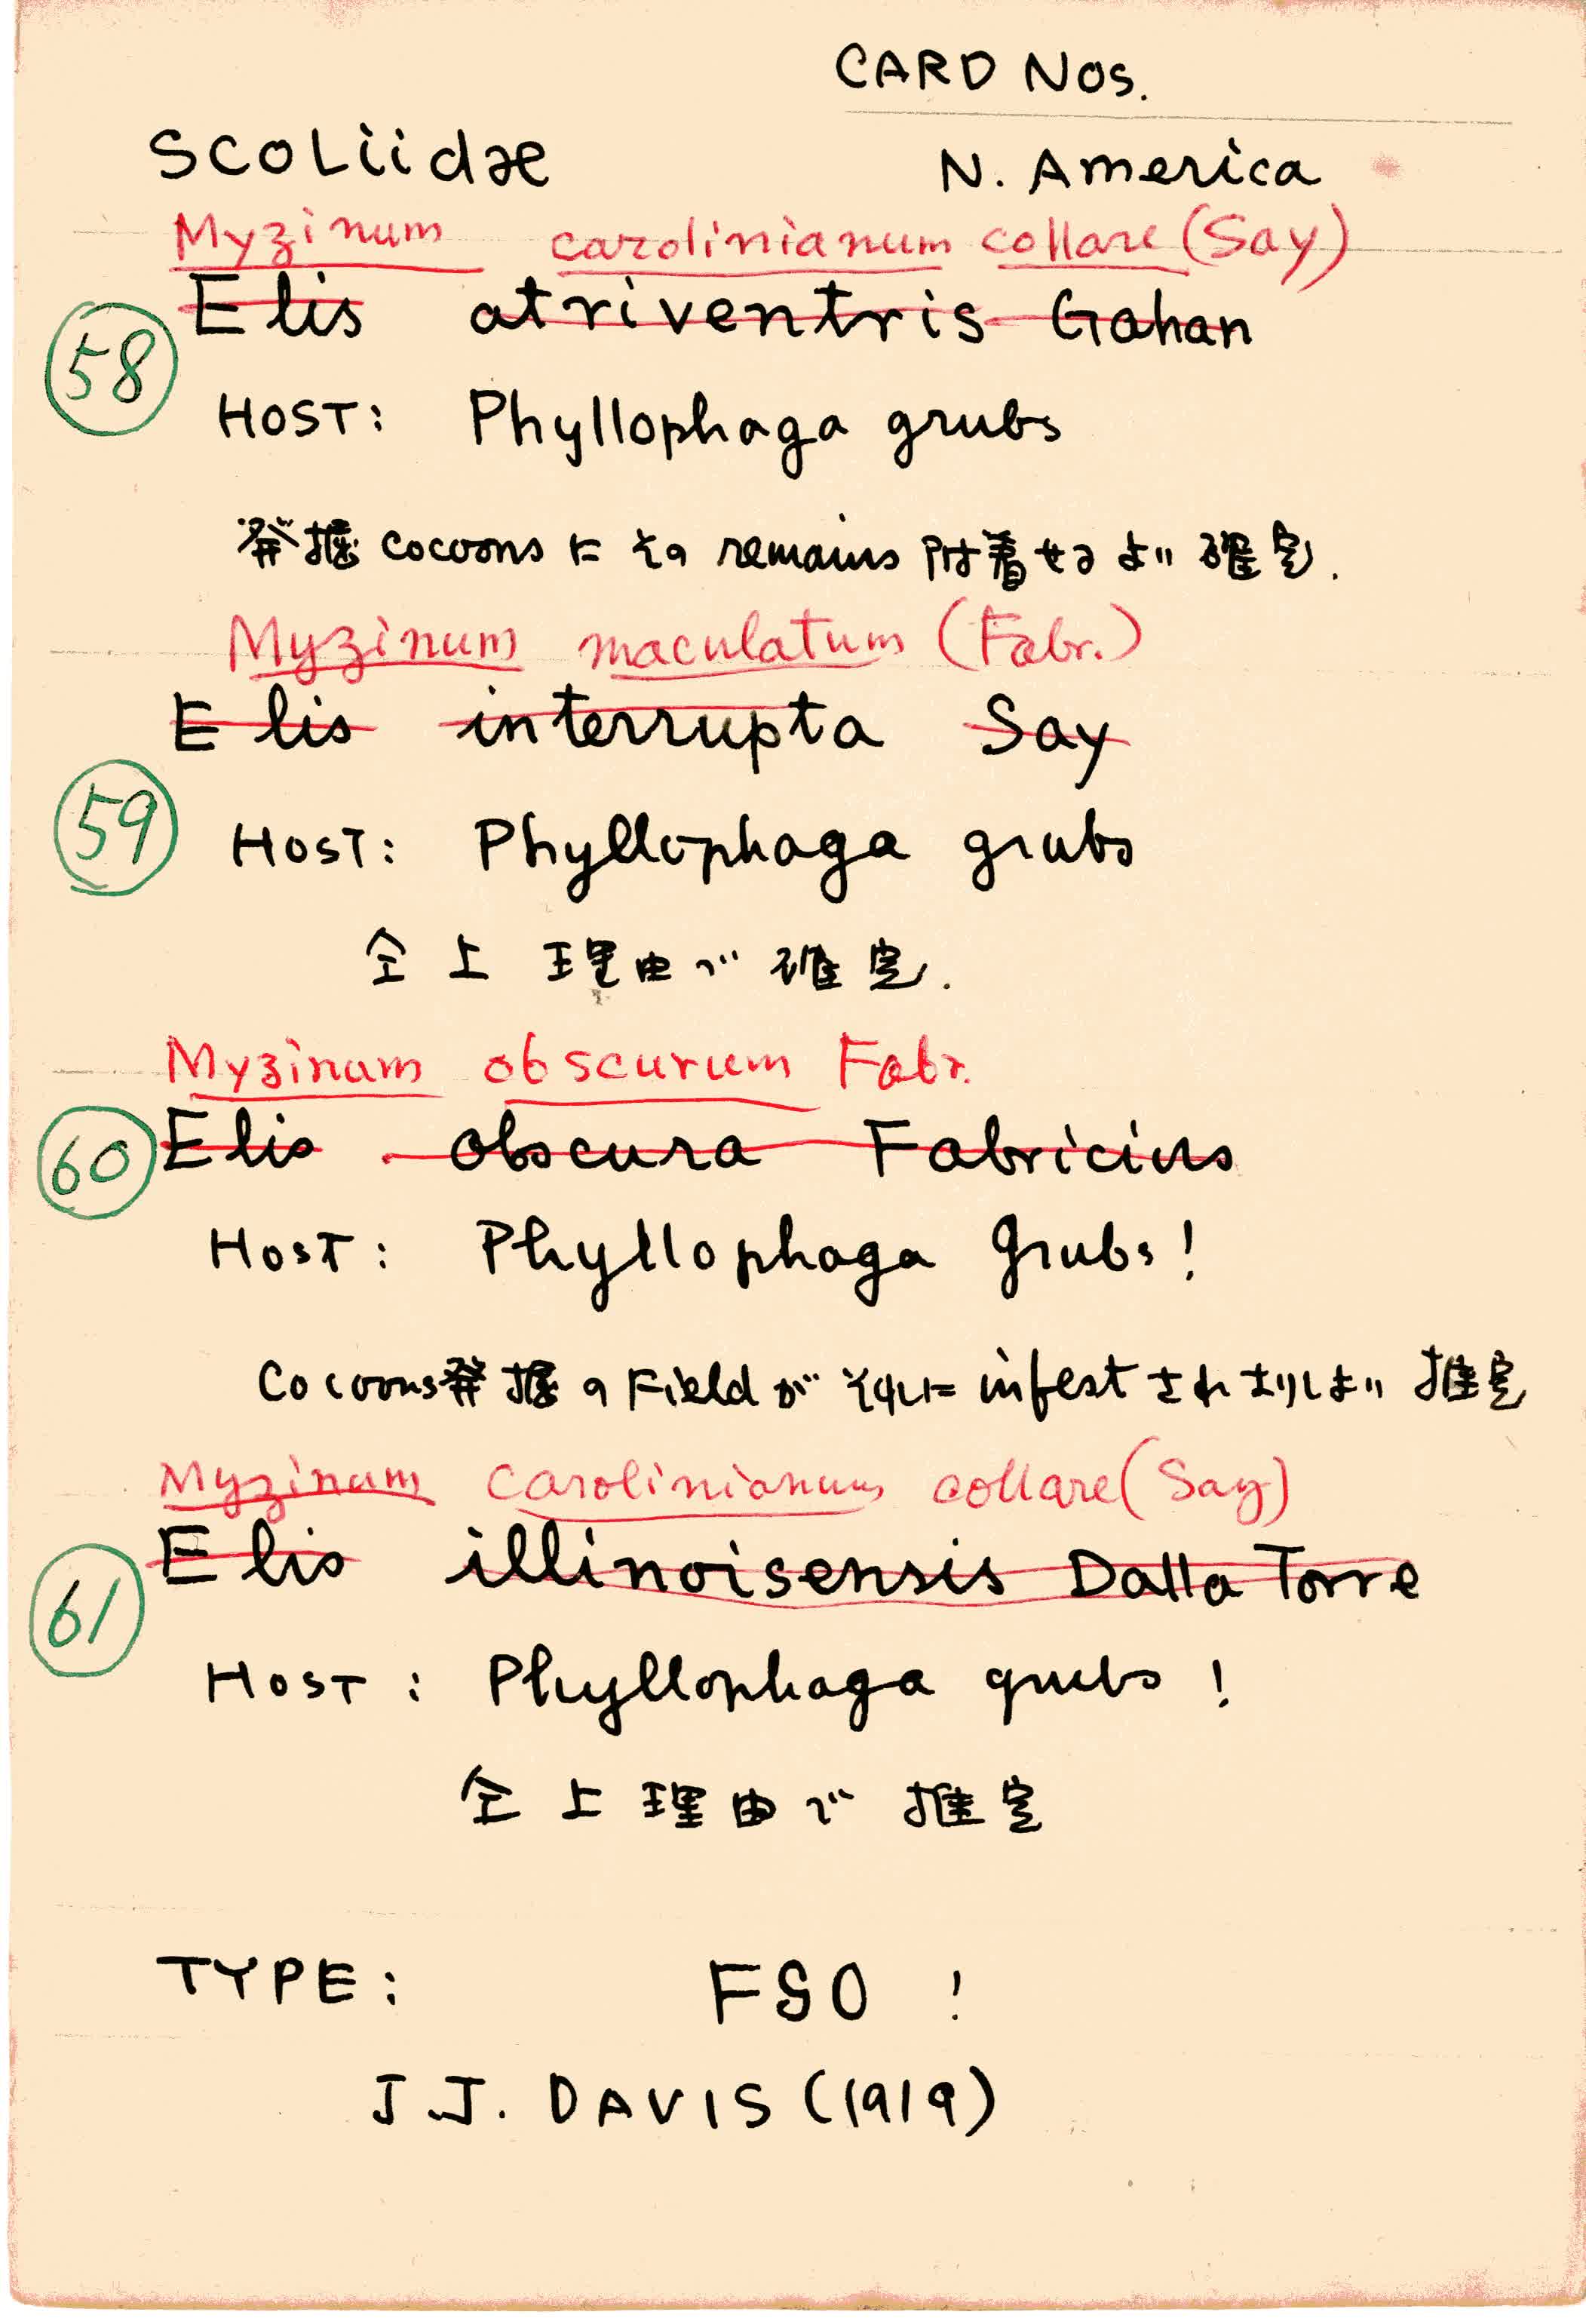 CARD Nos.
SCOLiidæ N. America
Myzinum carolinianum collare (Say)
Elis atriventris Gahan
58
HOST: Phyllophaga grubs
発掘 cocoons に その remains 附着せるより 確定.
Myzinum maculatum (Fabr.)
Elis interrupta Say
59
HOST: Phyllophaga grubs
仝上 理由で 確定.
Myzinum obscurum Fabr.
60 Elis obscura Fabricius
HOST: Phyllophaga Grubs!
Cocoons発掘のFieldが それに infestされありしより 推定
Myzinum carolinianum collare (Say)
Elis illinoisensis Dalla Torre
61
HOST: Phyllophaga grubs !
仝上理由で 推定
TYPE: FSO !
J.J. DAVIS (1919)